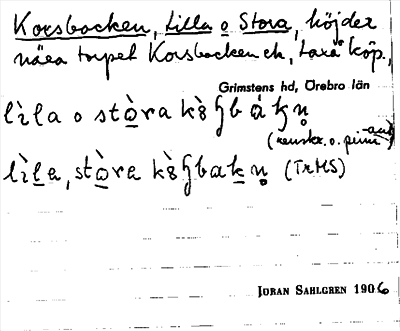 Korsbacken, Lilla o Stora, höjder
nära torpet Korsbacken ch, Laxå köp.,
Grimstens hd, Örebro län
lìla o stòra kòʂbákn̥
lìla, stòra kòʂbakn̥ (TrHS)
JÖRAN SAHLGREN 1906